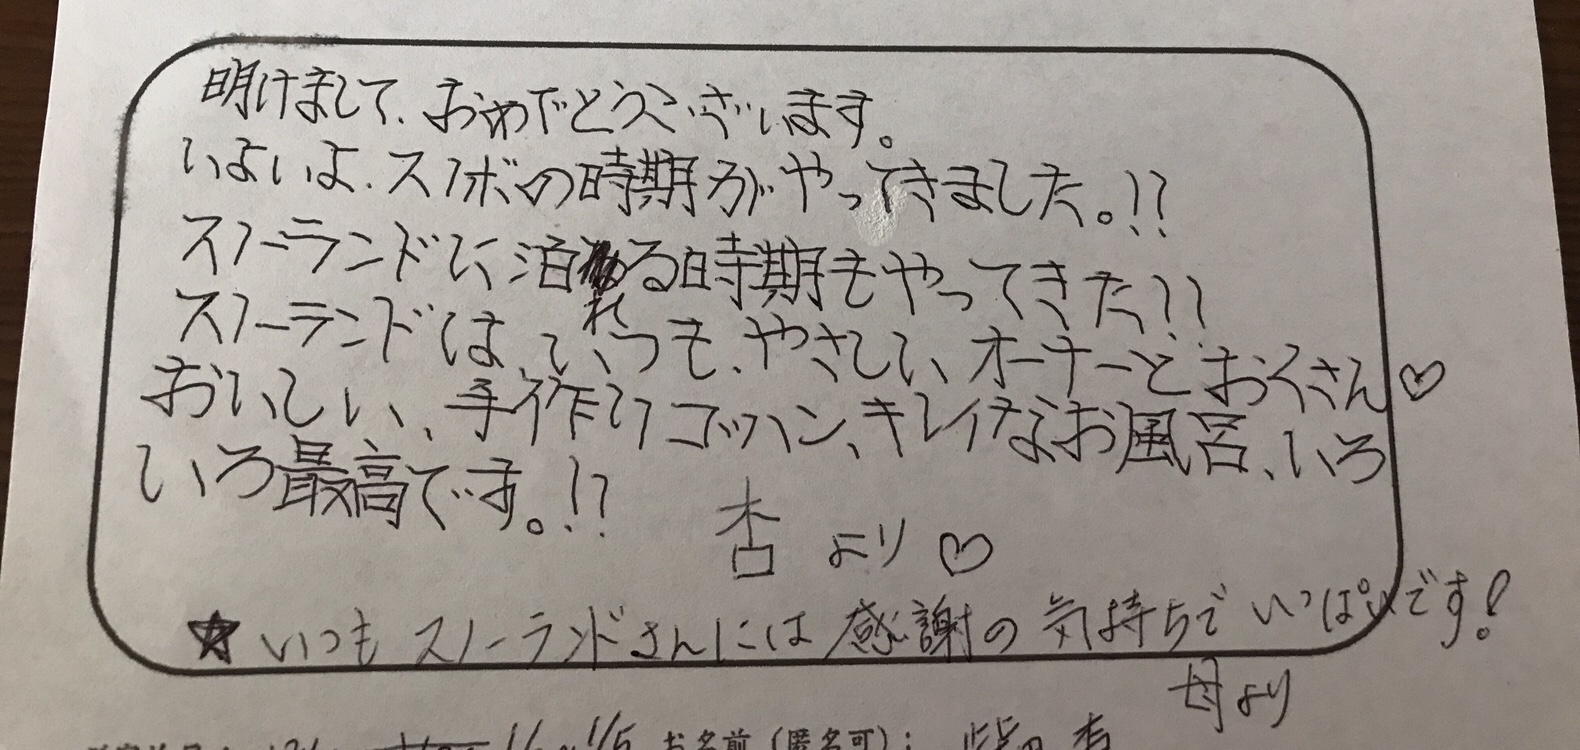 明けまして、おめでとうございます。
いよいよ、スノボの時期がやってきました。!?
スノーランドに泊れる時期もやってきた!?
スノーランドは、いつも、やさしい、オーナーとおくさん♡
おいしい、手作りコッハン、キレイなお風呂、いろ
いろ最高です。!?
杏より♡
★いつもスノーランドさんには感謝の気持ちでいっぱいです!
母より
1/5 お名前(匿名可): 杏